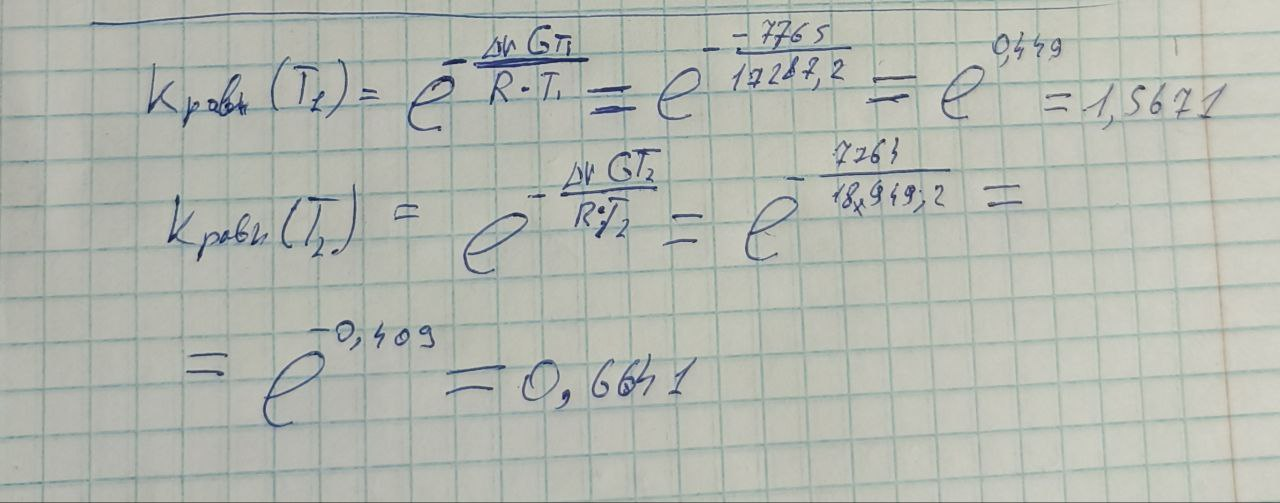 K равн (T₁) = e^(-ΔrGT₁ / R·T₁) = e^(- -7765 / 17287,2) = e^0,449 = 1,5671
K равн (T₂) = e^(-ΔrGT₂ / R·T₂) = e^(- 7764 / 18949,2) =
= e^-0,409 = 0,6641